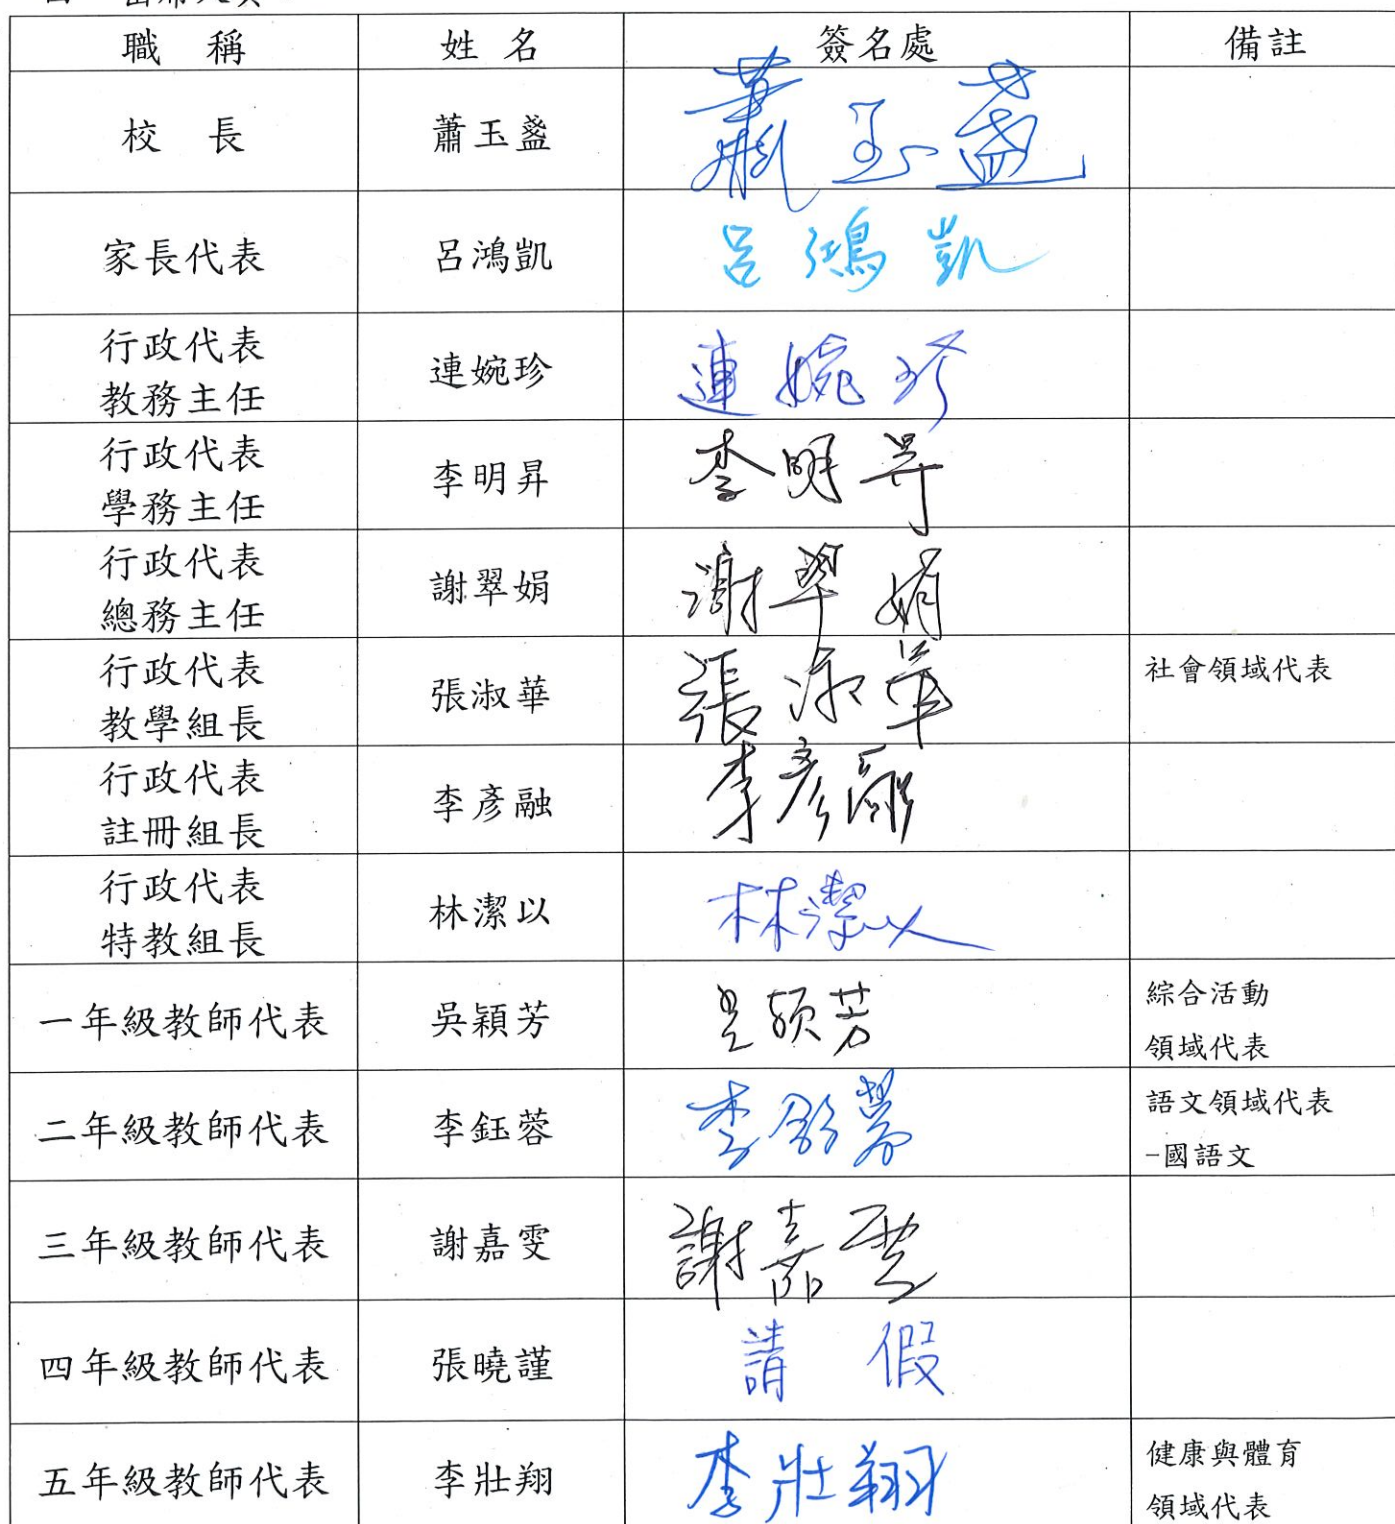 職稱 姓名 簽名處 備註
校長 蕭玉盞 蕭玉盞
家長代表 呂鴻凱 呂鴻凱
行政代表
教務主任 連婉珍 連婉珍
行政代表
學務主任 李明昇 李明昇
行政代表
總務主任 謝翠娟 謝翠娟
行政代表 社會領域代表
教學組長 張淑華 張淑華
行政代表
註冊組長 李彥融 李彥融
行政代表
特教組長 林潔以 林潔以
一年級教師代表 吳穎芳 吳穎芳 綜合活動
領域代表
二年級教師代表 李鈺蓉 語文領域代表
-國語文
三年級教師代表 謝嘉雯 謝嘉雯
四年級教師代表 張曉謹 請假
五年級教師代表 李壯翔 李壯翔 健康與體育
領域代表